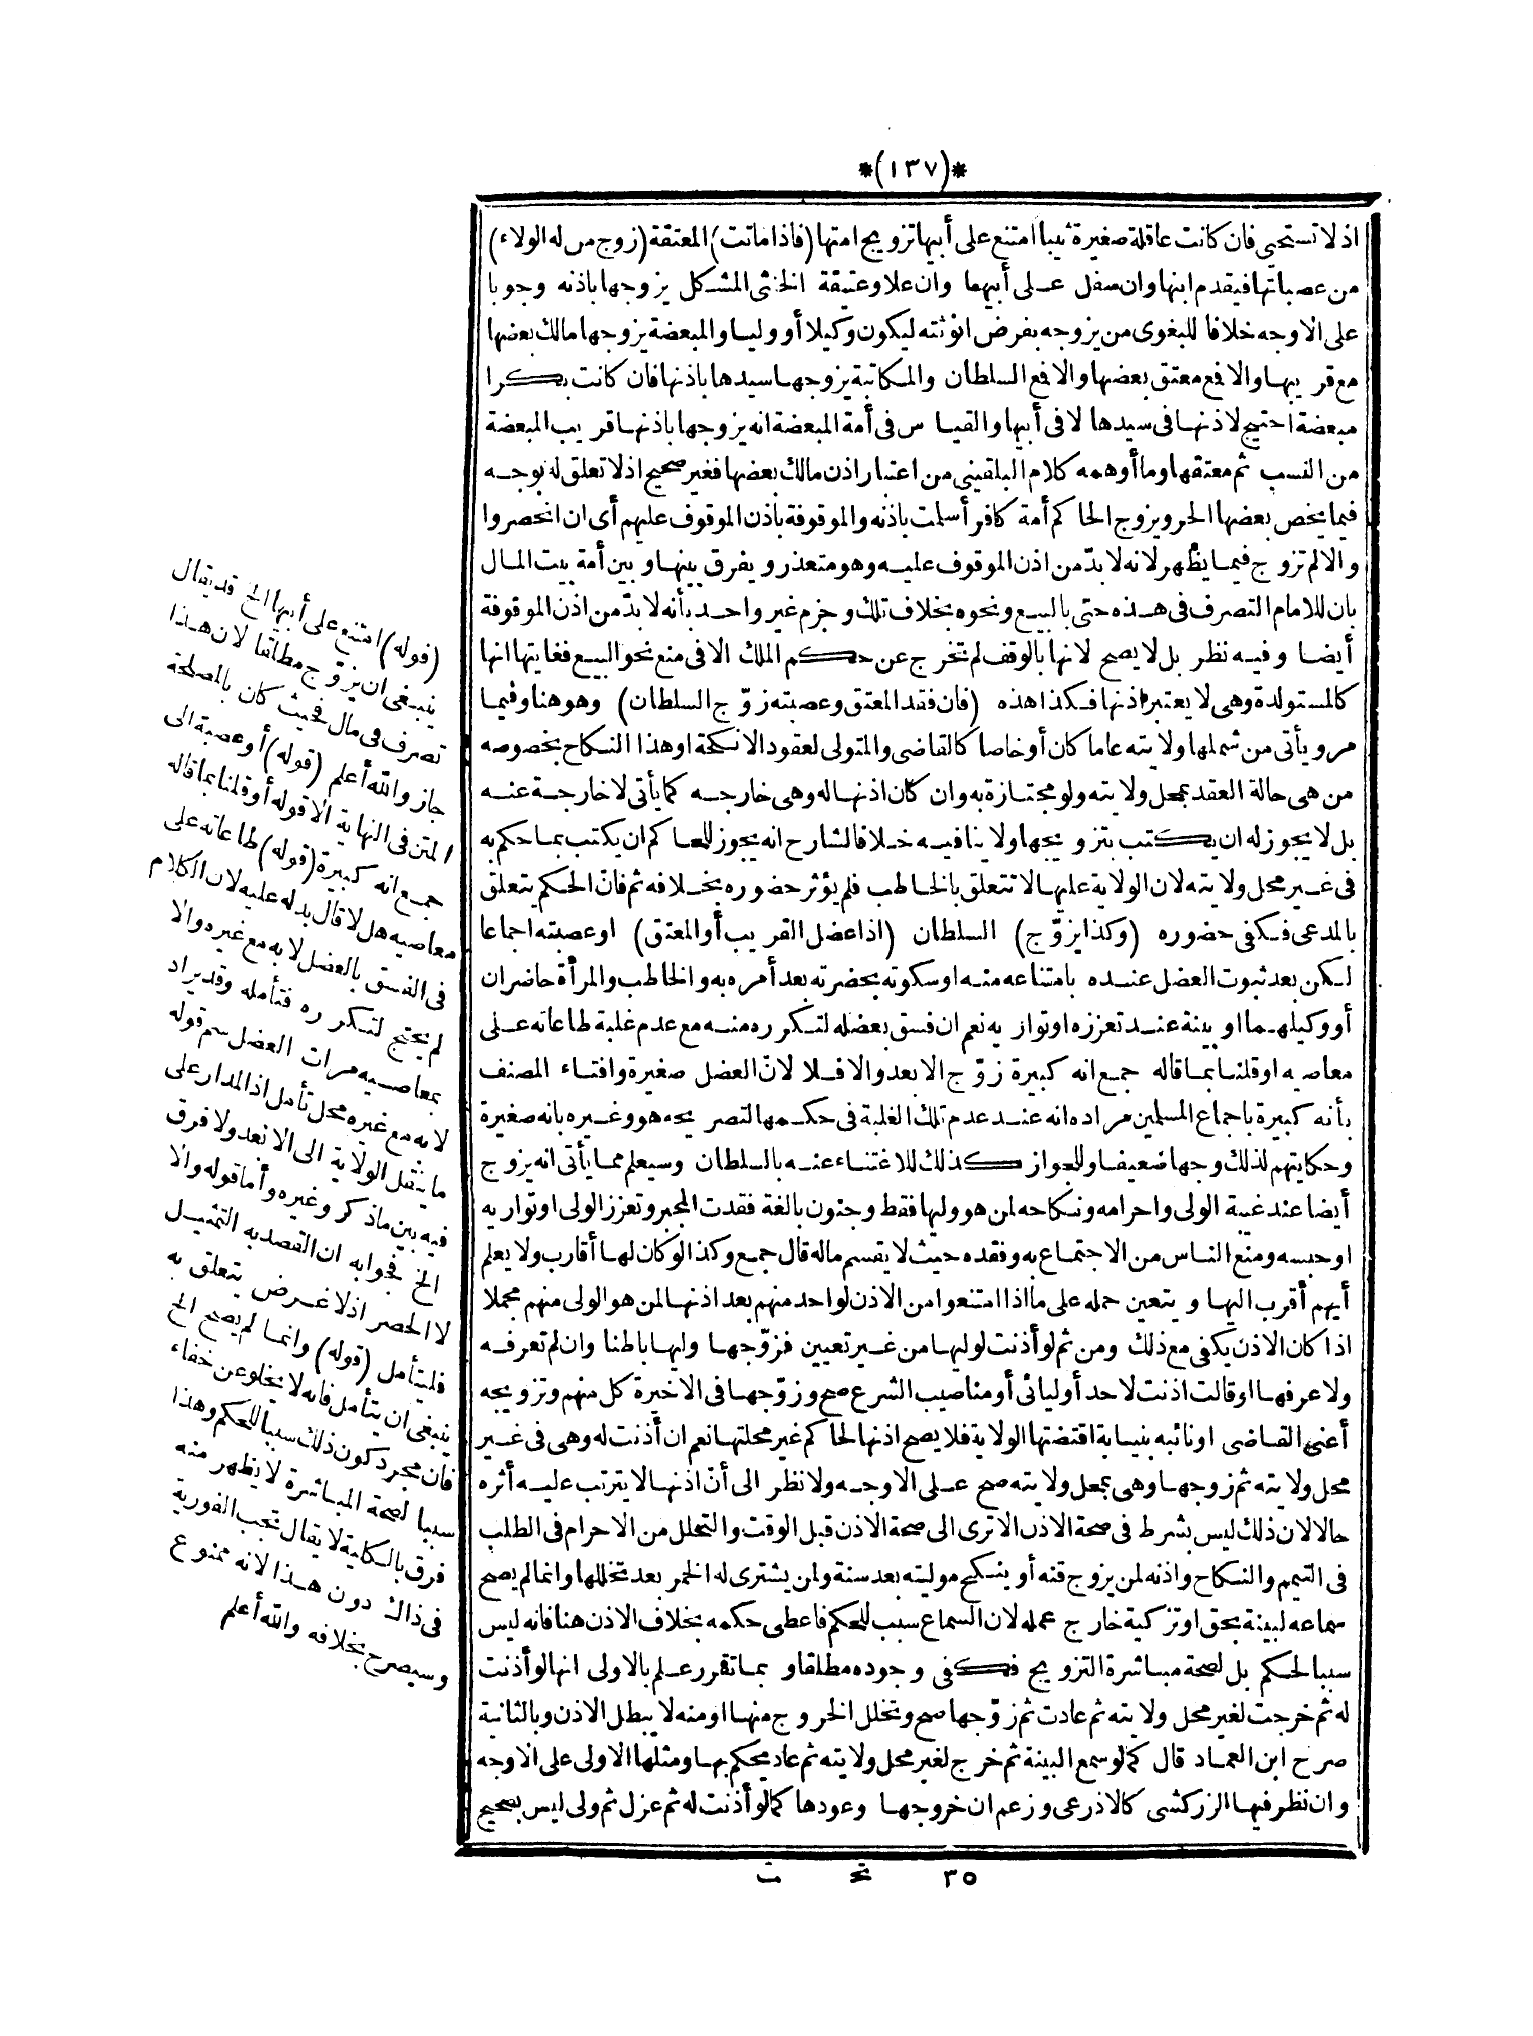 *(١٣٧)*
اذ لا تستحيي فان كانت عاقلة صغيرة ثيبا امتنع على أبيها تزويج امتها (فاذا ماتت) المعتقة (زوج من له الولاء)
من عصباتها فيقدم ابنها وان سفل على أبيها وان علا وعتيقة الخنثى المشكل يزوجها باذنه وجوبا
على الاوجه خلافا للبغوى من يزوجه بفرض انوثته ليكون وكيلا أو وليا والمبعضة يزوجها مالك بعضها
مع قريبها والا فمع معتق بعضها والا فع السلطان والمكاتبة يزوجها سيدها باذنها فان كانت بكرا
مبعضة احتيج لاذنها فى سيدها لا فى أبيها والقياس فى أمة المبعضة انه يزوجها باذنها قريب المبعضة
من النسب ثم معتقها وما أوهمه كلام البلقينى من اعتبار اذن مالك بعضها فغير صحيح اذ لا تعلق له بوجه
فيما يخص بعضها الحر ويزوج الحاكم أمة كافر أسلمت باذنه والموقوفة باذن الموقوف عليهم أى ان انحصروا
والا لم تزوج فيما يظهر لانه لا بدّ من اذن الموقوف عليه وهو متعذر ويفرق بينها وبين أمة بيت المال
بان للامام التصرف فى هذه حتى بالبيع ونحوه بخلاف تلك وجزم غير واحد بأنه لا بدّ من اذن الموقوفة
أيضا وفيه نظر بل لا يصح لانها بالوقف لم تخرج عن حكم الملك الا فى منع نحو البيع فغايتها انها
كالمستولدة وهى لا يعتبر اذنها فكذا هذه (فان فقد المعتق وعصبته زوّج السلطان) وهو هنا وفيما
مر ويأتى من شملها ولايته عاما كان أو خاصا كالقاضى والمتولى لعقود الانكحة او هذا النكاح بخصوصه
من هى حالة العقد بمحل ولايته ولو مجتازة به وان كان اذنها له وهى خارجه كما يأتى لا خارجة عنه
بل لا يجوز له ان يكتب بتزويجها ولا ينافيه خلافا لشارح انه يجوز للحاكم ان يكتب بما حكم به
فى غير محل ولايته لان الولاية عليها لا تتعلق بالخاطب فلم يؤثر حضوره بخلافه ثم فانّ الحكم يتعلق
بالمدعى فكفى حضوره (وكذا يزوّج) السلطان (اذا عضل القريب أو المعتق) او عصبته اجماعا
لكن بعد ثبوت العضل عنده بامتناعه منه او سكوته بحضرته بعد أمره به والخاطب والمرأة حاضران
أو وكيلهما او بينة عند تعززه او تواريه نعم ان فسق بعضله لتكرره منه مع عدم غلبة طاعاته على
معاصيه او قلنا بما قاله جمع انه كبيرة زوّج الابعد والا فلا لانّ العضل صغيرة وافتاء المصنف
بأنه كبيرة باجماع المسلمين مراده انه عند عدم تلك الغلبة فى حكمها لتصريحه هو وغيره بانه صغيرة
وحكايتهم لذلك وجها ضعيفا وللجواز كذلك للاغتناء عنه بالسلطان وسيعلم مما يأتى انه يزوج
أيضا عند غيبة الولى واحرامه ونكاحه لمن هو وليها فقط وجنون بالغة فقدت المجبر وتعزز الولى او تواريه
او حبسه ومنع الناس من الاجتماع به وفقده حيث لا يقسم ماله قال جمع وكذا لو كان لها أقارب ولا يعلم
أيهم أقرب اليها ويتعين حمله على ما اذا امتنعوا من الاذن لواحد منهم بعد اذنها لمن هو الولى منهم مجملا
اذا كان الاذن يكفى مع ذلك ومن ثم لو أذنت لوليها من غير تعيين فزوّجها وليها باطنا وان لم تعرفه
ولا عرفها او قالت اذنت لاحد أوليائى أو مناصيب الشرع صح وزوّجها فى الاخيرة كل منهم وتزويجه
أعنى القاضى او نائبه بنيابة اقتضتها الولاية فلا يصح اذنها لحاكم غير محلتها نعم ان أذنت له وهى فى غير
محل ولايته ثم زوجها وهى بمحل ولايته صح على الاوجه ولا نظر الى أنّ اذنها لا يترتب عليه أثره
حالا لان ذلك ليس بشرط فى صحة الاذن الا ترى الى صحة الاذن قبل الوقت والتحلل من الاحرام فى الطلب
فى التيمم والنكاح واذنه لمن يزوج قنه أو ينكح موليته بعد سنة ولمن يشترى له الخمر بعد تخللها وانما لم يصح
سماعه لبينة بحق او تزكية خارج عمله لان السماع سبب للحكم فاعطى حكمه بخلاف الاذن هنا فانه ليس
سببا لحكم بل لصحة مباشرة التزويج فكفى وجوده مطلقا وبما تقرر علم بالاولى انها لو أذنت
له ثم خرجت لغير محل ولايته ثم عادت ثم زوّجها صح وتخلل الخروج منها او منه لا يبطل الاذن وبالثانية
صرح ابن العماد قال كما لو سمع البينة ثم خرج لغير محل ولايته ثم عاد يحكم بها ومثلها الاولى على الاوجه
وان نظر فيها الزركشى كالاذرعى وزعم ان خروجها وعودها كما لو أذنت له ثم عزل ثم ولى ليس بصحيح
(قوله) امتنع على أبيها الخ قد يقال
ينبغى ان يزوّج مطلقا لان هذا
تصرف فى مال فحيث كان بالمصلحة
جاز والله أعلم (قوله) أو عصبة الى
المتن فى النهاية الا قوله أو قلنا بما قاله
جمع انه كبيرة (قوله) طاعاته على
معاصيه هل لا قال بدله عليه لان الكلام
فى الفسق بالعضل لا به مع غيره والا
لم يحتج لتكرره فتأمله وقد يراد
بمعاصيه مرات العضل سم قوله
لا به مع غيره محل تأمل اذ المدار على
ما ينقل الولاية الى الابعد ولا فرق
فيه بين ما ذكر وغيره وأما قوله والا
الخ فجوابه ان القصد به التمثيل
لا الحصر اذ لا غرض يتعلق به
فليتأمل (قوله) وانما لم يصح الخ
ينبغى ان يتأمل فانه لا يخلو عن خفاء
فان مجرد كون ذلك سببا للحكم وهذا
سببا لصحة المباشرة لا يظهر منه
فرق بالكلية لا يقال تجب الفورية
فى ذاك دون هذا لانه ممنوع
وسيصرح بخلافه والله أعلم
٣٥ تح ت